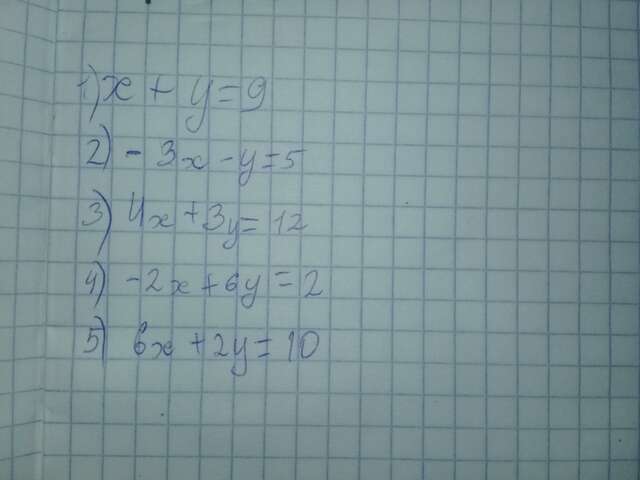 1) x + y = 9
2) - 3x - y = 5
3) 4x + 3y = 12
4) -2x + 6y = 2
5) 6x + 2y = 10